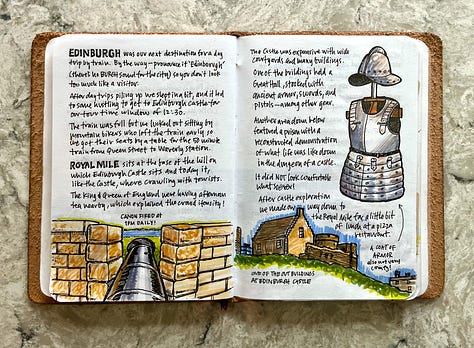 EDINBURGH was our next destination for a day
trip by train. By the way - pronounce it "Edinborough"
(there's no BURG sound for the city) so you don't look
too much like a visitor.
After day trips piling up we slept in a bit, and it led
to some hustling to get to Edinburgh castle for
our tour time window of 12:30.
The train was full but we lucked out sitting by
mountain bikers who left the train early so
we got their seats by a table for the 50 minute
train from Queen Street to Waverly station.
ROYAL MILE sits at the base of the hill on
which Edinburgh Castle sits and today it,
like the castle, where crawling with tourists.
The King & Queen of England were having afternoon
tea nearby, which explained the crowd density!
CANON FIRED AT
1PM DAILY!
The Castle was expansive with wide
courtyards and many buildings.
One of the buildings had a
Great Hall, stocked with
ancient armor, swords, and
pistols - among other gear.
Another area down below
featured a prison with a
reconstructed demonstration
of what life was like down
in the dungeon of a castle.
It did NOT look comfortable
whatsoever!
After Castle exploration
we made our way down to
the Royal Mile for a little bit
of lunch at a pizza
restaurant.
A COAT OF
ARMOR
also not very
comfy!
ONE OF THE OUT BUILDINGS
AT EDINBURGH CASTLE